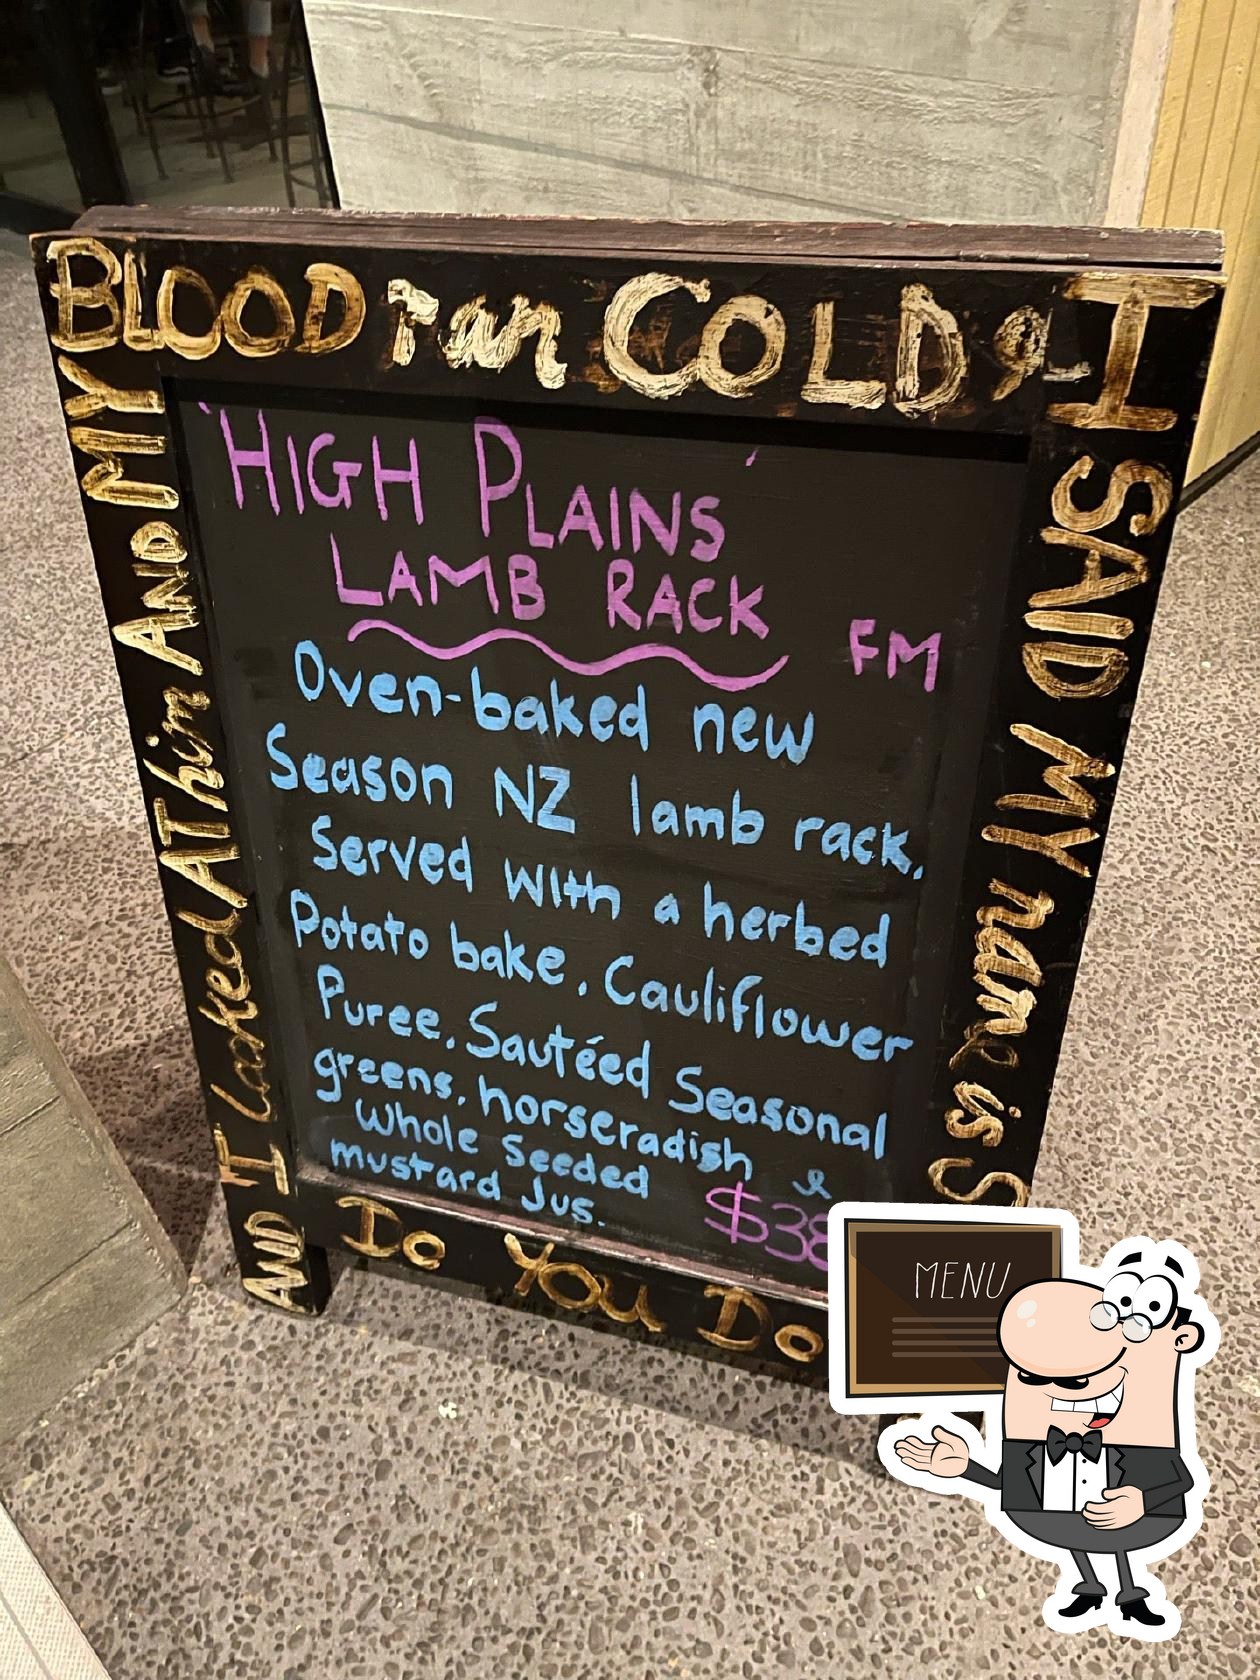 AND I Looked AT him AND MY
BLOOD ran COLD & I
SAID MY name is S
'HIGH PLAINS'
LAMB RACK
FM
Oven-baked new
Season NZ lamb rack,
Served with a herbed
Potato bake, Cauliflower
Puree, Sautéed Seasonal
greens, horseradish &
Whole Seeded
mustard Jus.
Do You Do
MENU